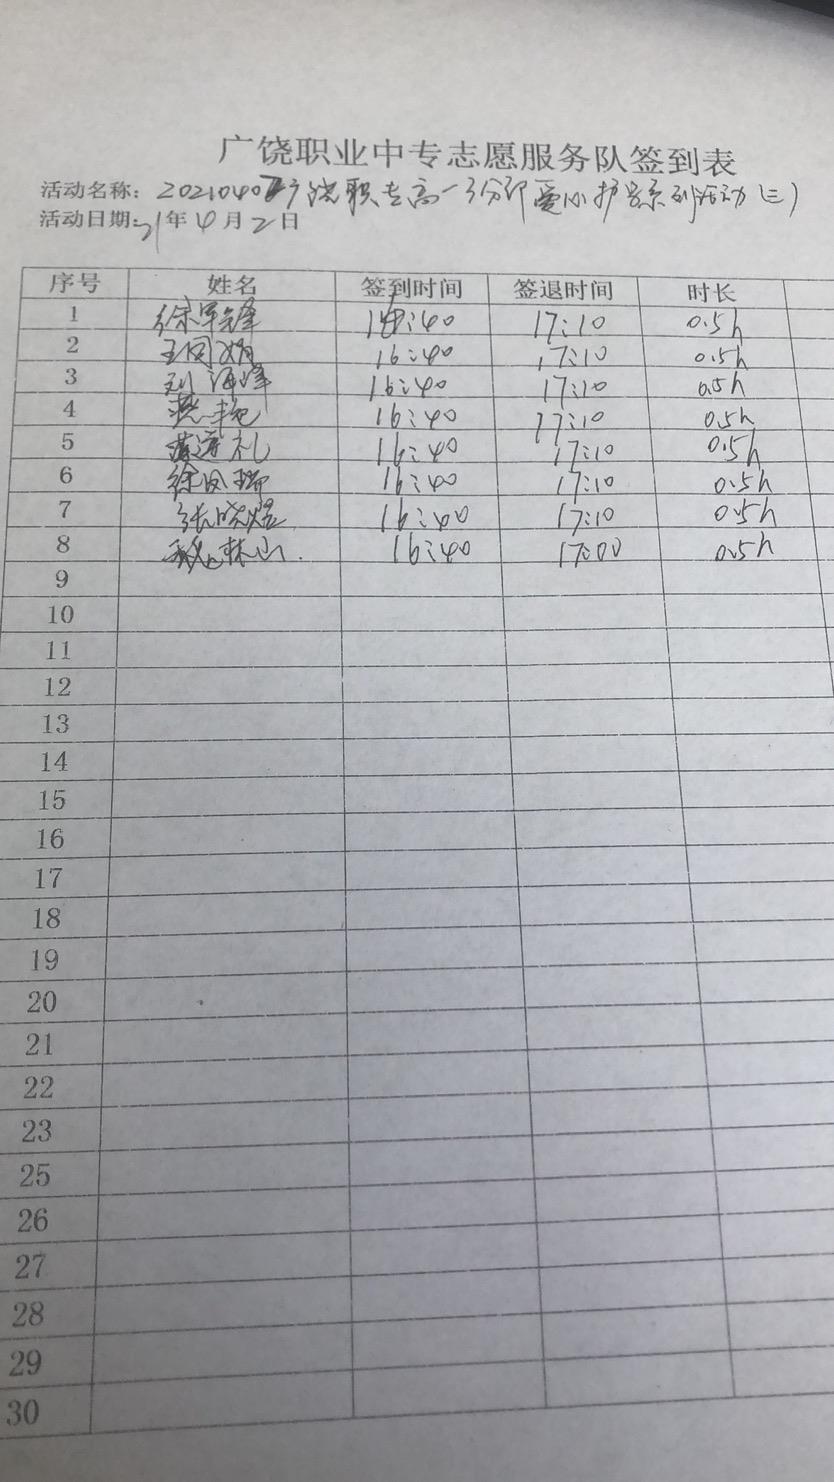 广饶职业中专志愿服务队签到表
活动名称：2021040 广饶职专高一3分部爱心护 系列活动(三)
活动日期:21年4月2日
序号 姓名 签到时间 签退时间 时长
1 徐军锋 16:40 17:10 0.5h
2 王 娟 16:40 17:10 0.5h
3 刘海峰 16:40 17:10 0.5h
4 燕艳 16:40 17:10 0.5h
5 礼 16:40 17:10 0.5h
6 徐 16:40 17:10 0.5h
7 张晓煜 16:40 17:10 0.5h
8 林山 16:40 17:00 0.5h
9
10
11
12
13
14
15
16
17
18
19
20
21
22
23
25
26
27
28
29
30